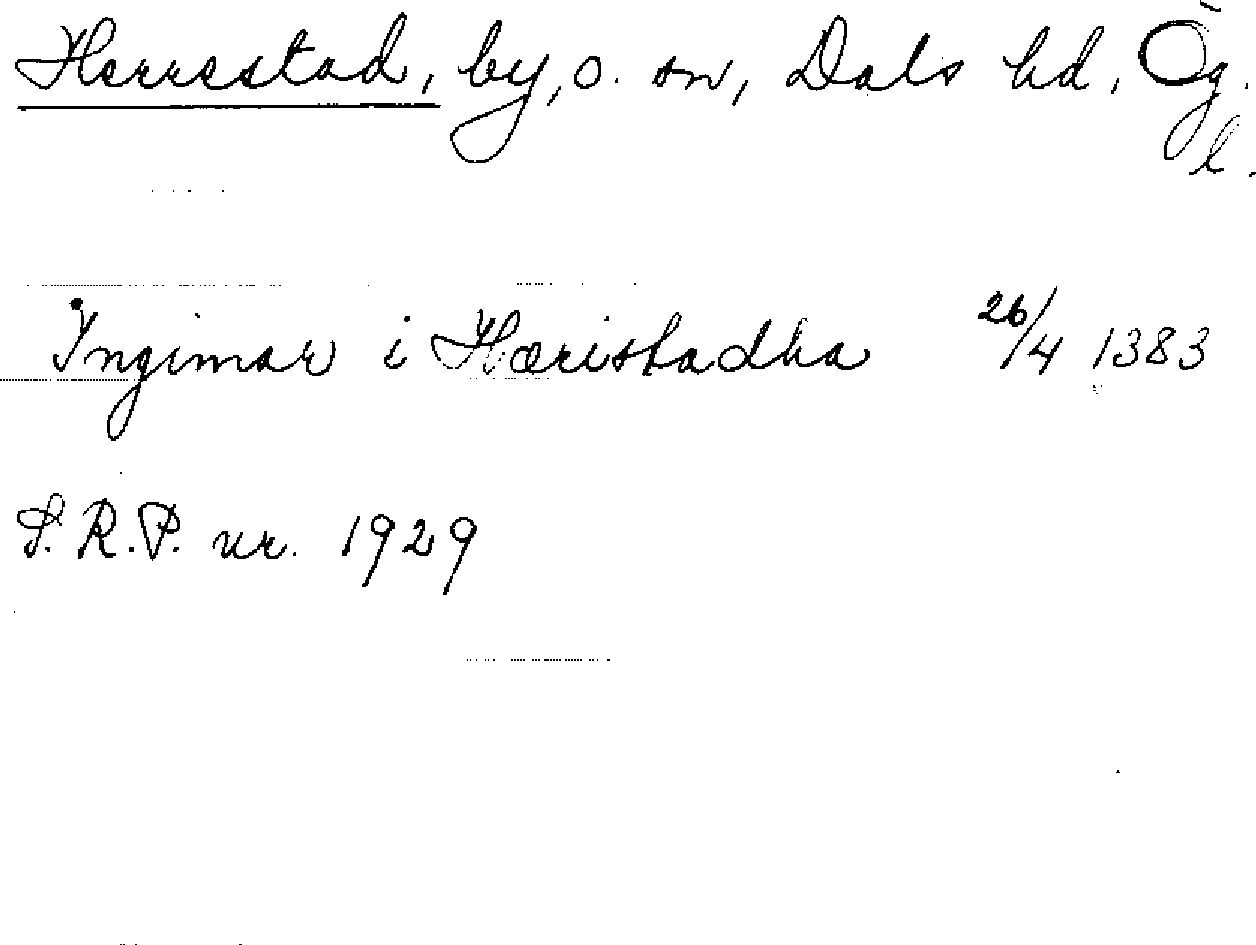 Herrestad, by, o. sn, Dals hd, Ög.
l.
Ingimar i Hæristadha 26/4 1383
S.R.P. nr. 1929